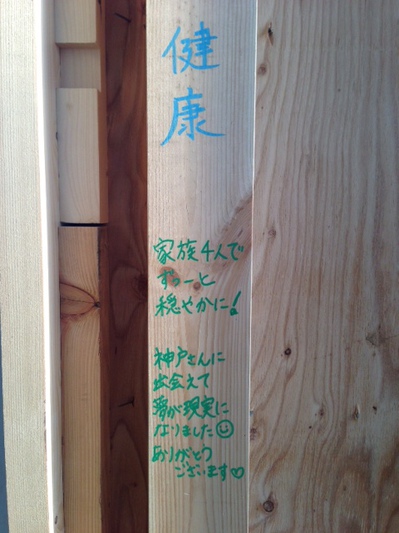 健
康
家族4人で
ずっーと
穏やかに!
神戸さんに
出会えて
夢が現実に
なりました☺
ありがとう
ございます♡